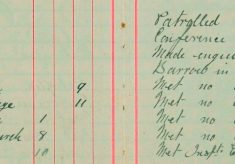 Patrolled
Conference
Made enqui
Barrow in
9 Met no
ge 11 Met no
1 Met no
urch 8 Met no
10 Met Inspt.